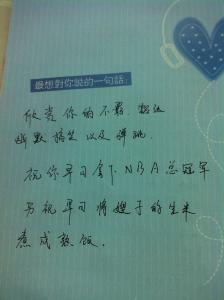 最想對你說的一句話:
欣赏你的不羁、豁达
幽默搞笑以及弹跳.
祝你早日拿下NBA总冠军
另祝早日将嫂子的生米
煮成熟饭.